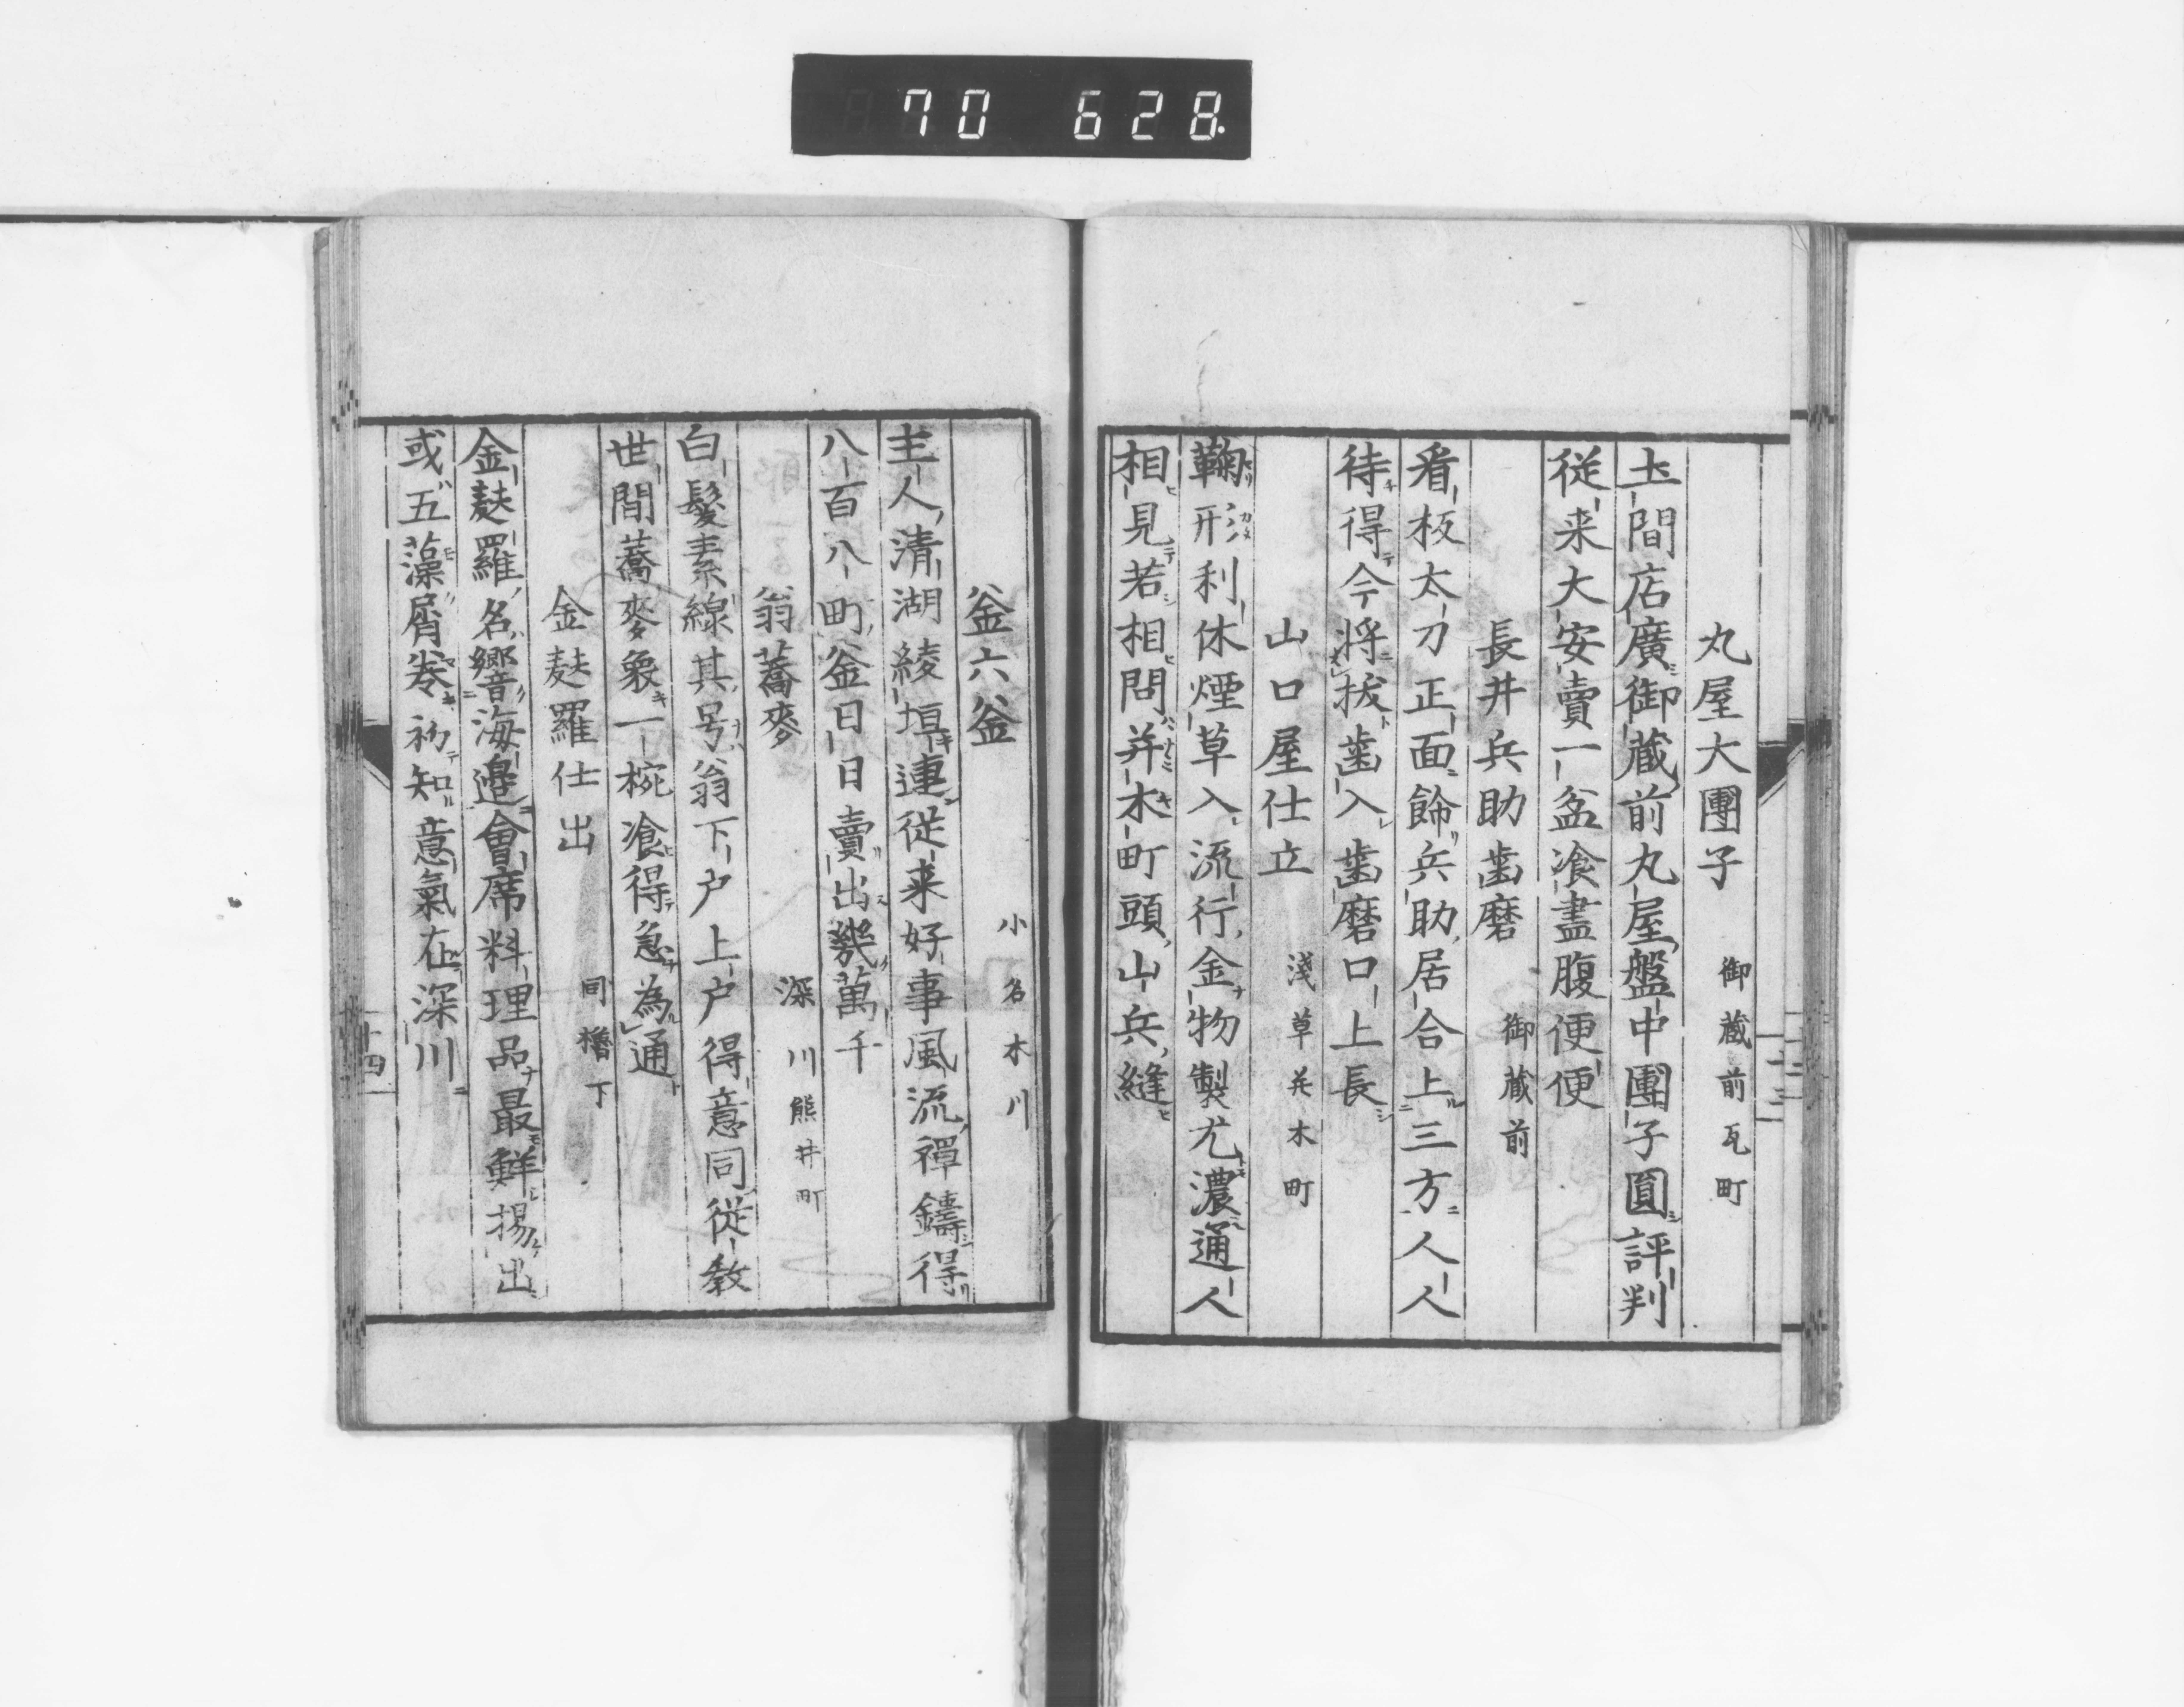 70 628.
丸屋大團子 御蔵前瓦町
土間店廣御蔵前丸屋盤中團子圓評判
従来大安賣一盆飡盡腹便便
長井兵助歯磨 御蔵前
看板太刀正面餝兵助居合上三方人人
待得今将抜歯入歯磨口上長
山口屋仕立 淺草並木町
鞠形利休煙草入流行金物製尤濃通人
相見若相問并木町頭山兵縫
釜六釜 小名木川
主人清湖綾垣連従来好事風流禪鑄得
八百八町釜日日賣出幾萬千
翁蕎麥 深川熊井町
白髪素線其号翁下戸上戸得意同従教
世間蕎麥象一椀飡得急為通
金麩羅仕出 同櫓下
金麩羅名響海邉會席料理品最鮮揚出
或五藻屑巻初知意氣在深川
十四